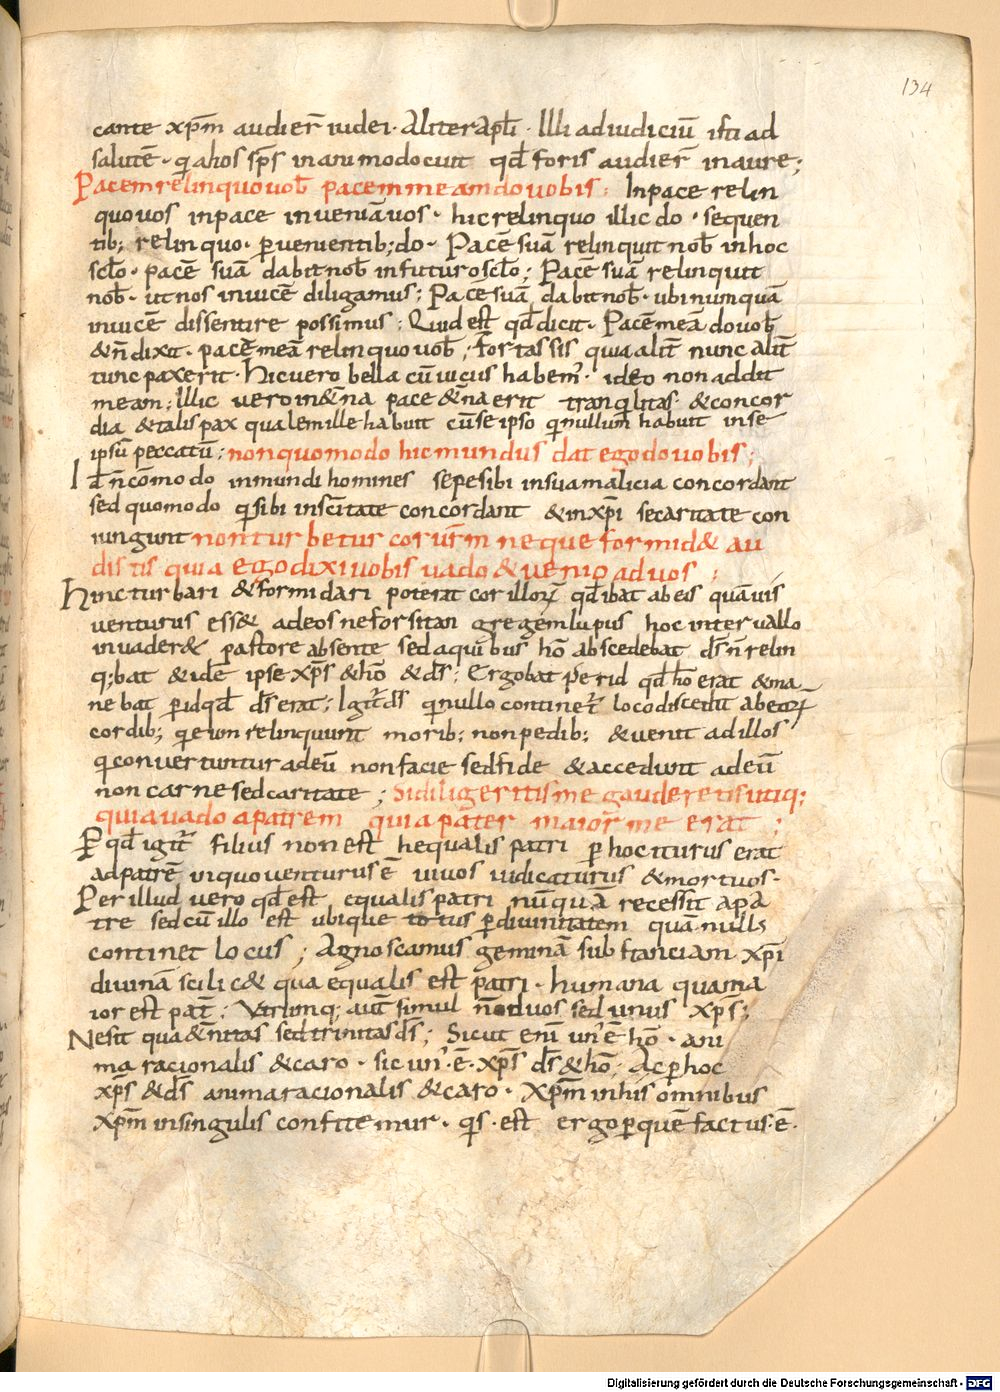 134
cante xp̄m audier̄ iudei · Aliter Apl̄i · Illi ad iudiciū isti ad
salutē · qi ahos sp̄s in animo docuit qd̄ foris audier̄ in aure ;
Pacem relinquo uob̄ pacem meam do uobis : In pace relin
quo uos in pace inueniā uos · hic relinquo illic do · sequen
tib; relinquo · ꝑuenientib; do · Pacē suā relinquit nob̄ in hoc
sclo · pacē suā dabit nob̄ in futuro sclo ; Pacē suā relinquit
nob̄ · ut nos inuicē diligamus ; Pacē suā dabit nob̄ · ubi numquā
inuicē dissentire possimus : Quid est qd̄ dicit · Pacē meā do uob̄
& n̄ dixit · pacē meā relinquo uob̄ ; fortassis quia alit̄ nunc alit̄
tunc pax erit · Hic uero bella cū uicus habem᾽ · ideo non addit
meam ; Illic uero in &̄na pace &̄na erit tranq̇litas & concor
dia & talis pax qualem ille habuit cū se ipso qi nullum habuit in se
ipsū peccatū ; non quomodo hic mundus dat ego do uobis ;
Id ē n̄ cōmodo in mundi homines sepe sibi in sua malicia concordant
sed quomodo qi sibi in scītate concordant & in xp̄i se caritate con
iungunt non turbetur cor ur̄m neque formid& au
distis quia ego dixi uobis uado & uenio ad uos ;
Hinc turbari & formidari poterat cor illoꝝ qd̄ ibat ab eis quāuis
uenturus ess& ad eos ne forsitan gregem lupus hoc interuallo
inuader& pastore absente sed a quibus hō abscedebat ds̄ n̄ relin
q;bat & idē ipse xp̄s & hō & ds̄ ; Ergo bat ꝑ id qd̄ hō erat & ma
nebat ꝑ id qd̄ ds̄ erat ; Igit̄ ds̄ qi nullo continet̄ loco discedit ab eoꝝ
cordib; qi eum relinquunt morib; non pedib; & uenit ad illos
qi conuertuntur ad eū non facie sed fide & accedunt ad eū
non carne sed caritate ; Si diligeritis me gauderetis utiq;
quia uado a patrem quia pater maior me erat ;
P qd̄ igit̄ filius non est hequalis patri ꝑ hoc iturus erat
ad patrē un quo uenturus ē uiuos iudicaturus & mortuos ·
Per illud uero qd̄ est equalis patri nūquā recessit a pa
tre sed cū illo est ubique totus ꝑ diuinitatem quā nulls
continet locus ; Agnoscamus geminā substanciam xp̄i
diuinā scilic& qua equalis est patri · humana qua ma
ior est pat̄ ; Utrumq; aut̄ simul non duos sed unus xp̄s ;
Ne sit qua&̄nitas sed trinitas ds̄ ; Sicut enī un᾽ ē hō · ani
ma racionalis & caro · sic un᾽ · ē · xp̄s ds̄ & hō ; Ac ꝑ hoc
xp̄s & ds̄ anima racionalis & caro · Xp̄m in his omnibus
xp̄m in singulis confitemur · qis · est ergo ꝑ quē factus · ē ·
Digitalisierung gefördert durch die Deutsche Forschungsgemeinschaft - DFG